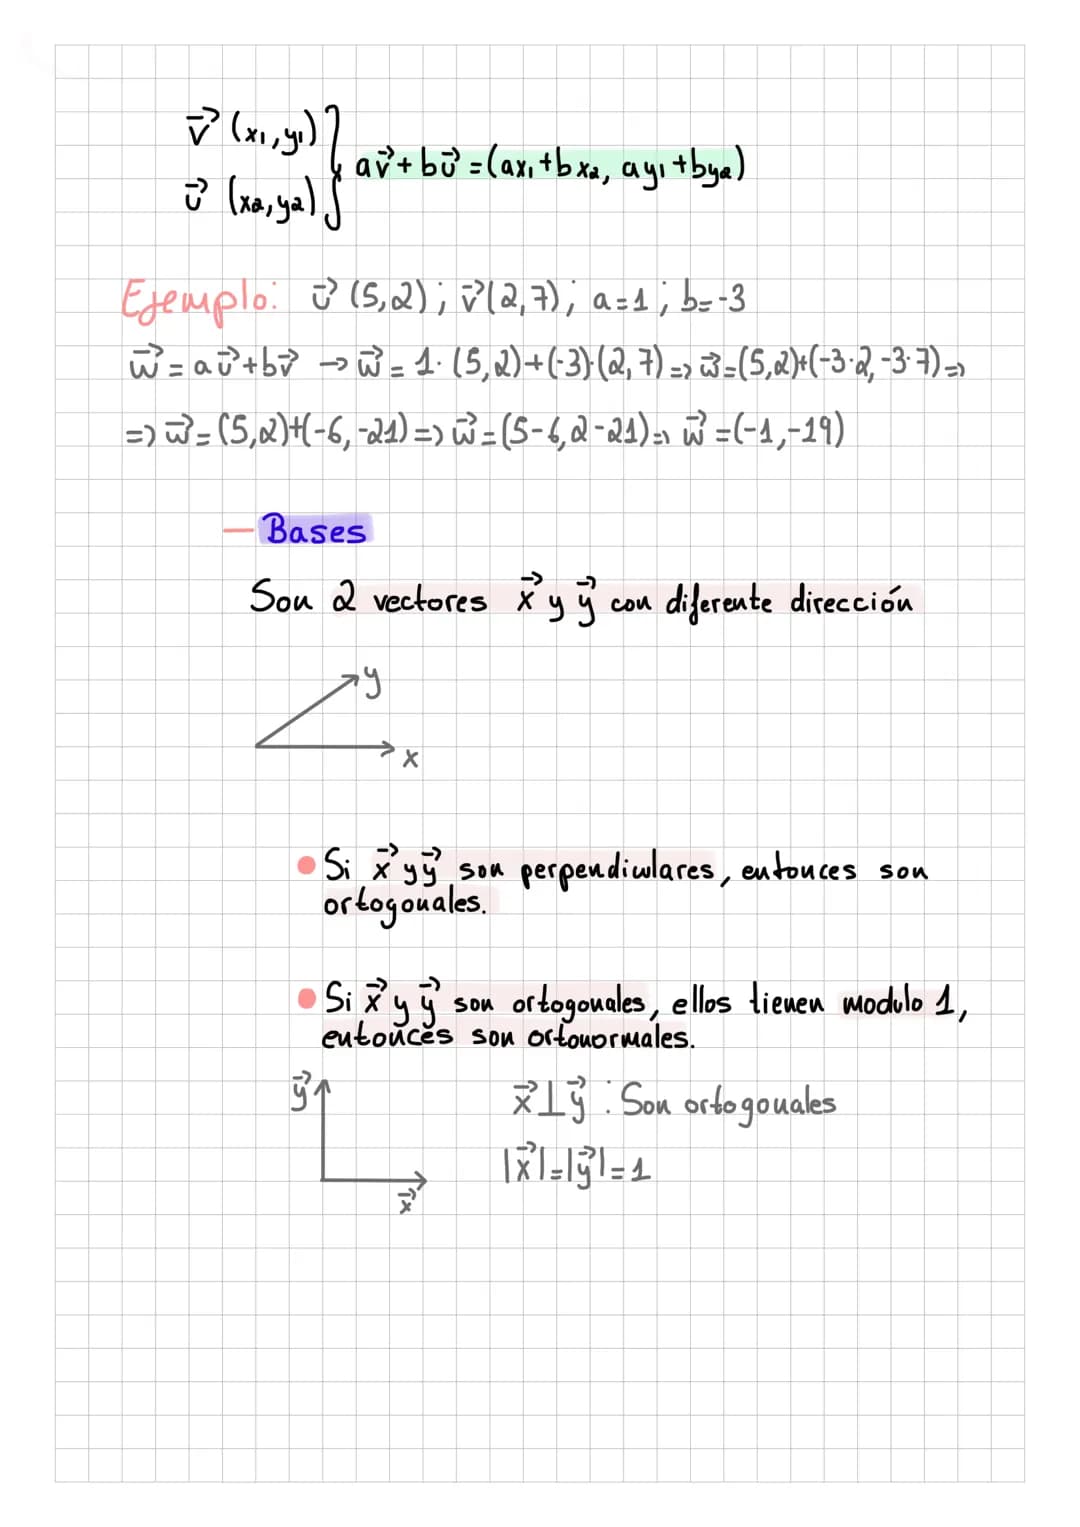 v⃗ (x₁,y₁)
u⃗ (x₂,y₂)
} av⃗ + bu⃗ = (ax₁+bx₂, ay₁+by₂)
Ejemplo: u⃗ (5,2) ; v⃗(2,7) ; a=1 ; b=-3
w⃗ = au⃗+bv⃗ → w⃗ = 1·(5,2)+(-3)·(2,7) => w⃗=(5,2)+(-3·2,-3·7) =>
=> w⃗=(5,2)+(-6,-21) => w⃗=(5-6,2-21) => w⃗=(-1,-19)
— Bases
Son 2 vectores x⃗ y y⃗ con diferente dirección
y
x
• Si x⃗ y y⃗ son perpendiculares, entonces son
ortogonales.
• Si x⃗ y y⃗ son ortogonales, ellos tienen modulo 1,
entonces son ortonormales.
y⃗
x⃗
x⃗⊥y⃗ : Son ortogonales
|x⃗|=|y⃗|=1